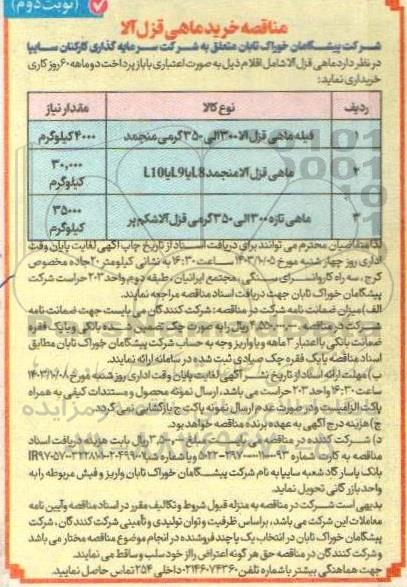 (نوبت دوم)
مناقصه خرید ماهی قزل آلا
شرکت پیشگامان خوراک تابان متعلق به شرکت سرمایه گذاری کارکنان سایپا
در نظر دارد ماهی قزل آلا شامل اقلام ذیل به صورت اعتباری با باز پرداخت دو ماهه ۶۰ روز کاری
خریداری نماید:
ردیف نوع کالا مقدار نیاز
۱ فیله ماهی قزل آلا ۳۰۰ الی ۳۵۰ گرمی منجمد ۴۰۰۰ کیلوگرم
۲ ماهی قزل آلا منجمد L8 یا L9 یا L10 ۳۰,۰۰۰ کیلوگرم
۳ ماهی تازه ۳۰۰ الی ۳۵۰ گرمی قزل آلا شکم پر ۳۵۰۰۰ کیلوگرم
لذا متقاضیان محترم می توانند برای دریافت اسناد از تاریخ چاپ آگهی لغایت پایان وقت
اداری روز چهار شنبه مورخ ۱۴۰۳/۱۰/۰۵ ساعت ۱۶:۳۰ به نشانی کیلومتر ۲۰ جاده مخصوص
کرج، سه راه کاروانسرای سنگی، مجتمع ایرانیان، طبقه دوم واحد ۲۰۳ حراست شرکت
پیشگامان خوراک تابان جهت دریافت اسناد مناقصه مراجعه نمایند.
الف) میزان ضمانت نامه شرکت در مناقصه: شرکت کنندگان می بایست جهت ضمانت نامه
شرکت در مناقصه ریال را به صورت چک تضمین شده بانکی و یا یک فقره
ضمانت بانکی با اعتبار ۳ ماهه و یا واریز وجه به حساب شرکت پیشگامان خوراک تابان مطابق
اسناد مناقصه یا یک فقره چک صیادی ثبت شده در سامانه ارائه نمایند.
ب) مهلت ارائه اسناد از تاریخ نشر آگهی لغایت پایان وقت اداری روز شنبه مورخ ۱۴۰۳/۱۰/۰۸
ساعت ۱۶:۳۰ واحد ۲۰۳ حراست می باشد، ارسال نمونه محصول و مستندات کیفی به همراه
پاکت الزامیست و در صورت عدم ارسال نمونه پاکت ج بازگشایی نمی گردد.
ج) هزینه درج آگهی به عهده برنده مناقصه خواهد بود.
د) شرکت کننده در مناقصه می بایست مبلغ ریال بابت هزینه دریافت اسناد
مناقصه به کارت شماره و یا شماره شبا
بانک پاسارگاد شعبه سایپا به نام شرکت پیشگامان خوراک تابان واریز و فیش مربوطه را به
واحد بازرگانی تحویل نماید.
بدیهی است شرکت در مناقصه به منزله قبول شروط و تکالیف مقرر در اسناد مناقصه و آیین نامه
معاملات این شرکت می باشد، بر اساس ظرفیت و توان تولیدی و تأمینی شرکت کنندگان، شرکت
پیشگامان خوراک تابان در انتخاب یک یا چند فروشنده در انجام موضوع مناقصه مختار می باشد
و شرکت کنندگان در مناقصه حق هر گونه اعتراض را از خود سلب و ساقط می نمایند.
جهت هماهنگی بیشتر با شماره تلفن ۰۲۱۴۶۰۷۴۳۶۰ داخلی ۲۵۴ تماس حاصل نمایید.